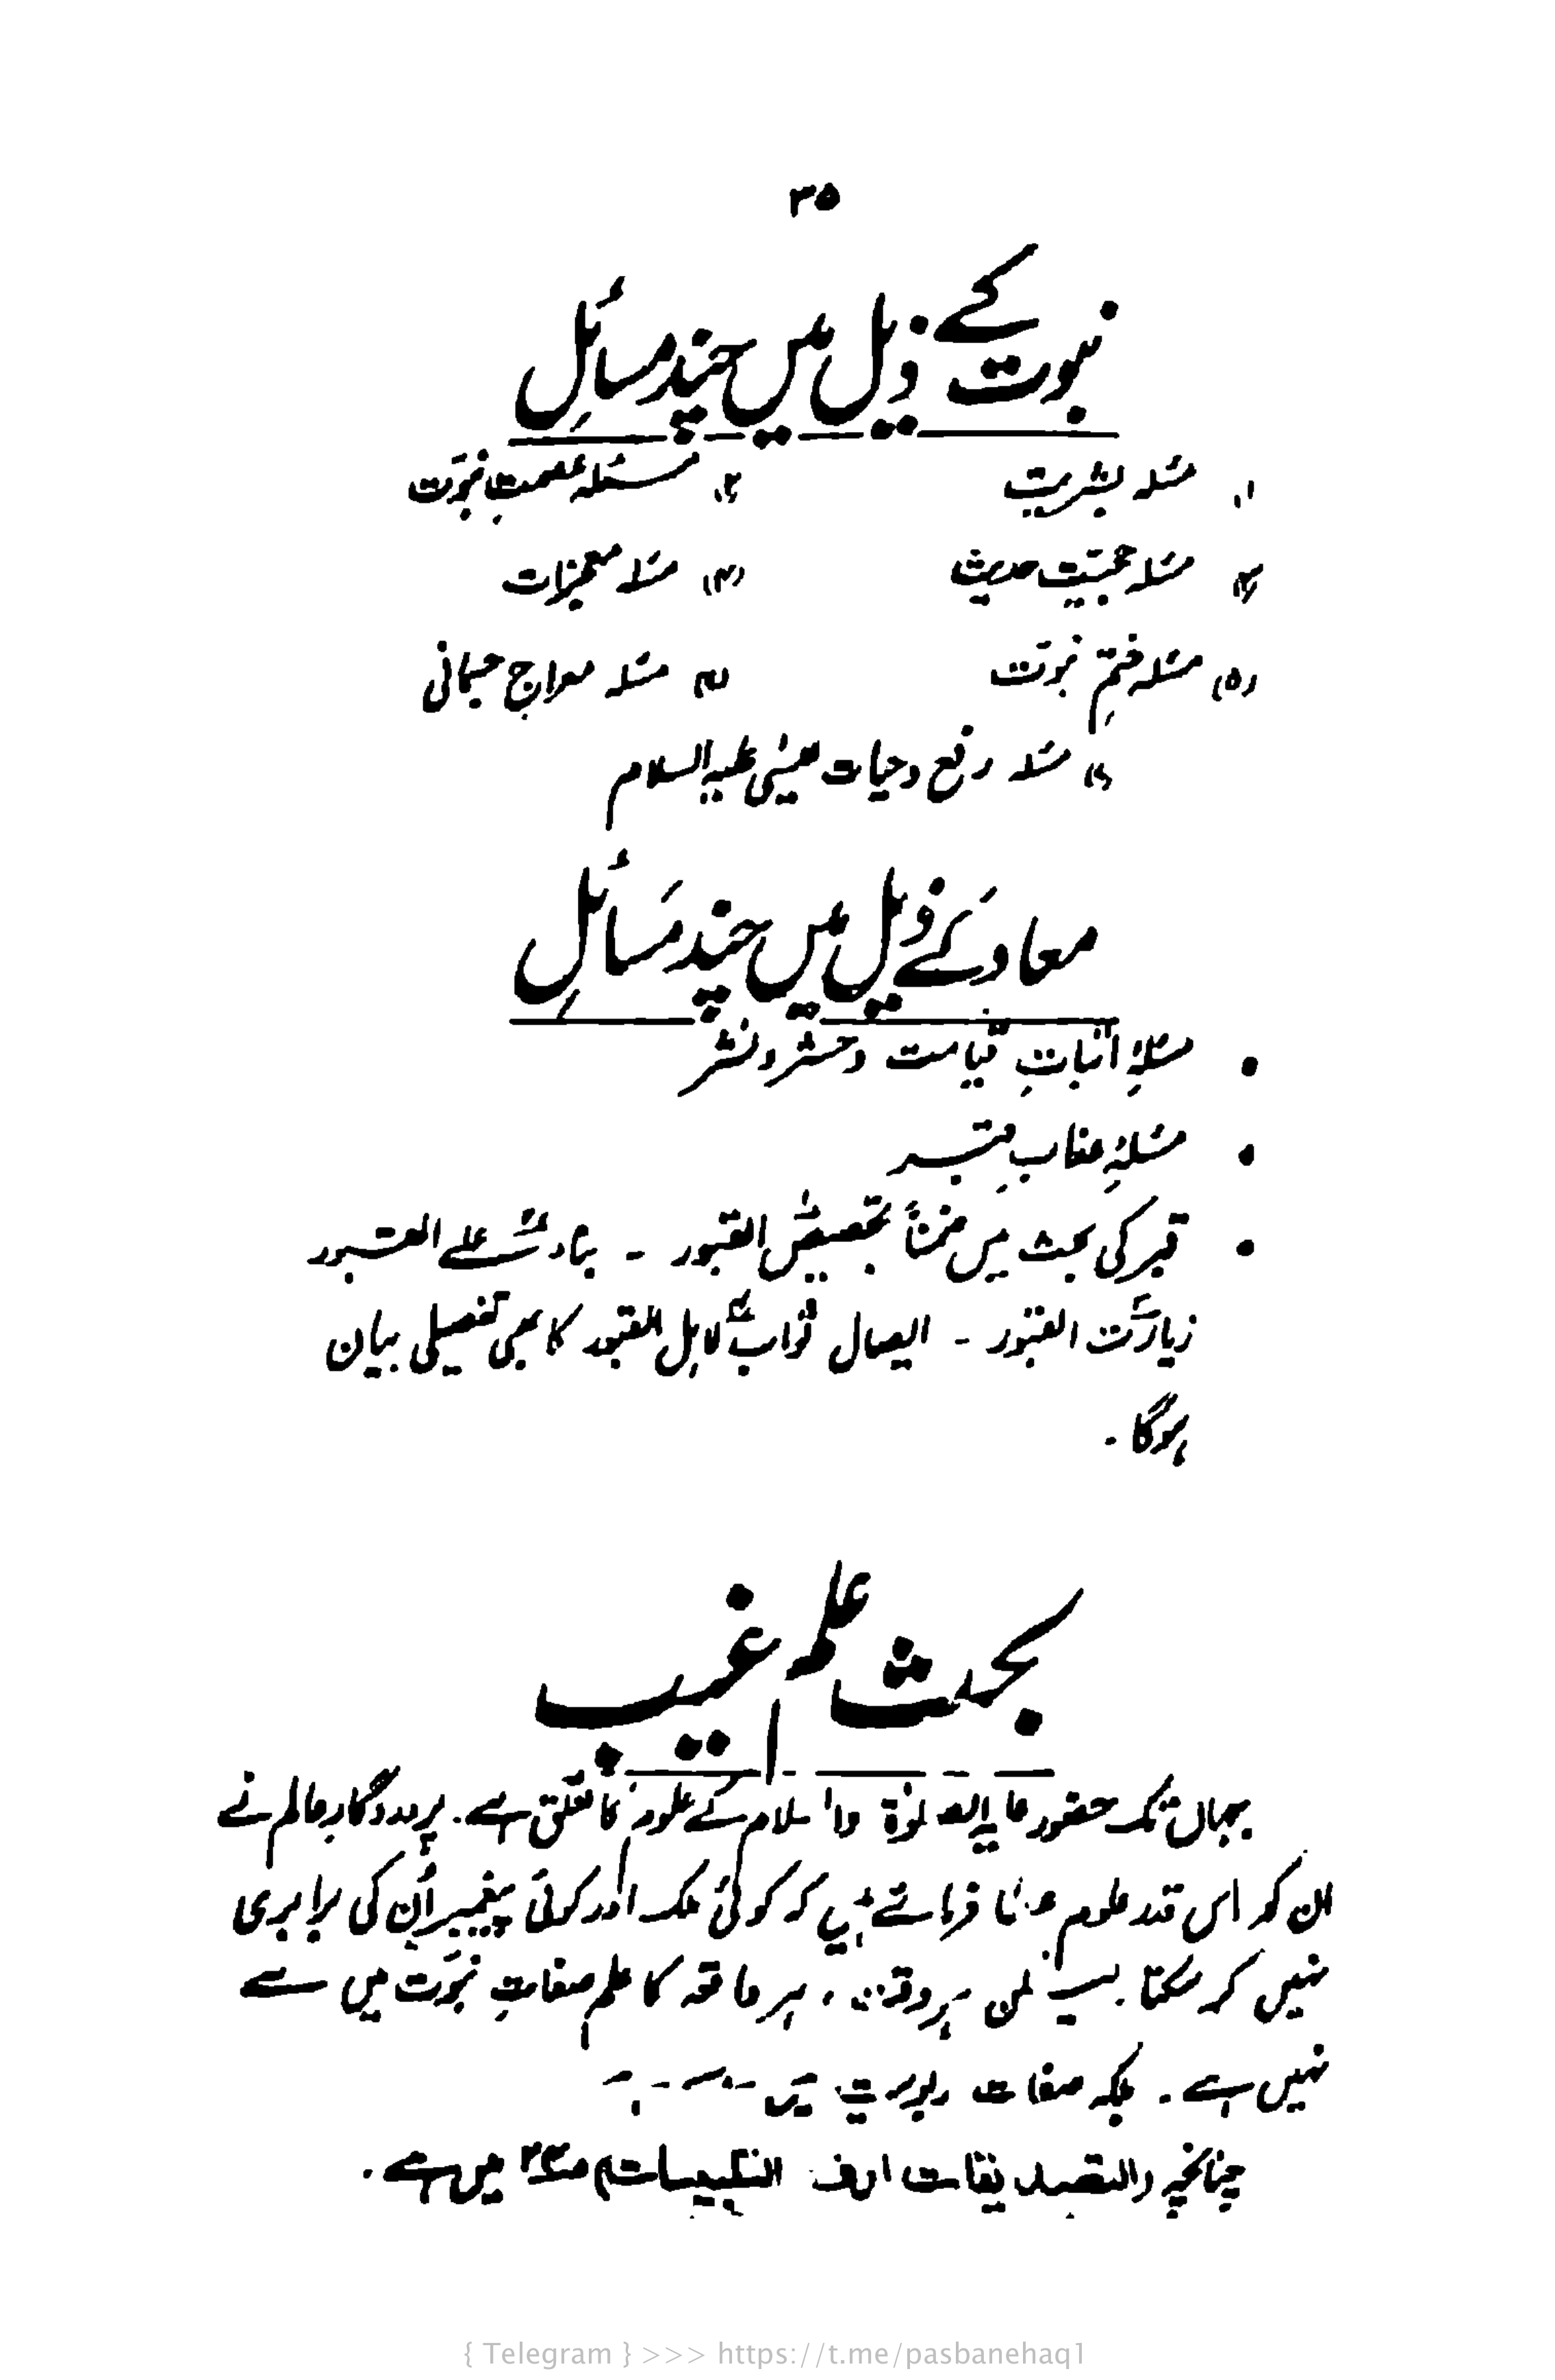 ۳۵
نبوت کے ذیل میں چند مسائل
(۱) مسئلہ بشریت (۲) مسئلہ عصمتِ نبوّت
(۳) مسئلہ حجیّتِ حدیث (۴) مسئلہ معجزات
(۵) مسئلہ ختمِ نبوّت (۶) مسئلہ معراجِ جسمانی
(۷) مسئلہ رفع وحیات عیسٰی علیہ السلام
معاد کے ذیل میں چند مسائل
• مسئلہِ اثباتِ قیامت وحشر ونشر
• مسئلہِ عذابِ قبر
• قبر کی بحث میں ضمناً تجصیص القبور - بناء علے القبور
زیارت القبور - ایصال ثواب لاہل القبور کا بھی تفصیلی بیان
ہوگا۔
بحث علم غیب
جہاں تک حضور علیہ الصلوٰۃ والسلام کے علوم کا تعلق ہے۔ پروردگارِ عالم نے
ان کو اس قدر علوم عطا فرمائے ہیں کہ کوئی ملک اور کوئی پیغمبر اُن کی برابری
نہیں کر سکتا۔ لیکن ہر وقت، ہر واقعہ کا علم صفاتِ نبوّت میں سے
نہیں ہے۔ بلکہ صفات ربوبیت میں سے ہے
چنانچہ (التصدیقات لدفع التلبیسات) میں ہے۔
{ Telegram } >>> https://t.me/pasbanehaq1